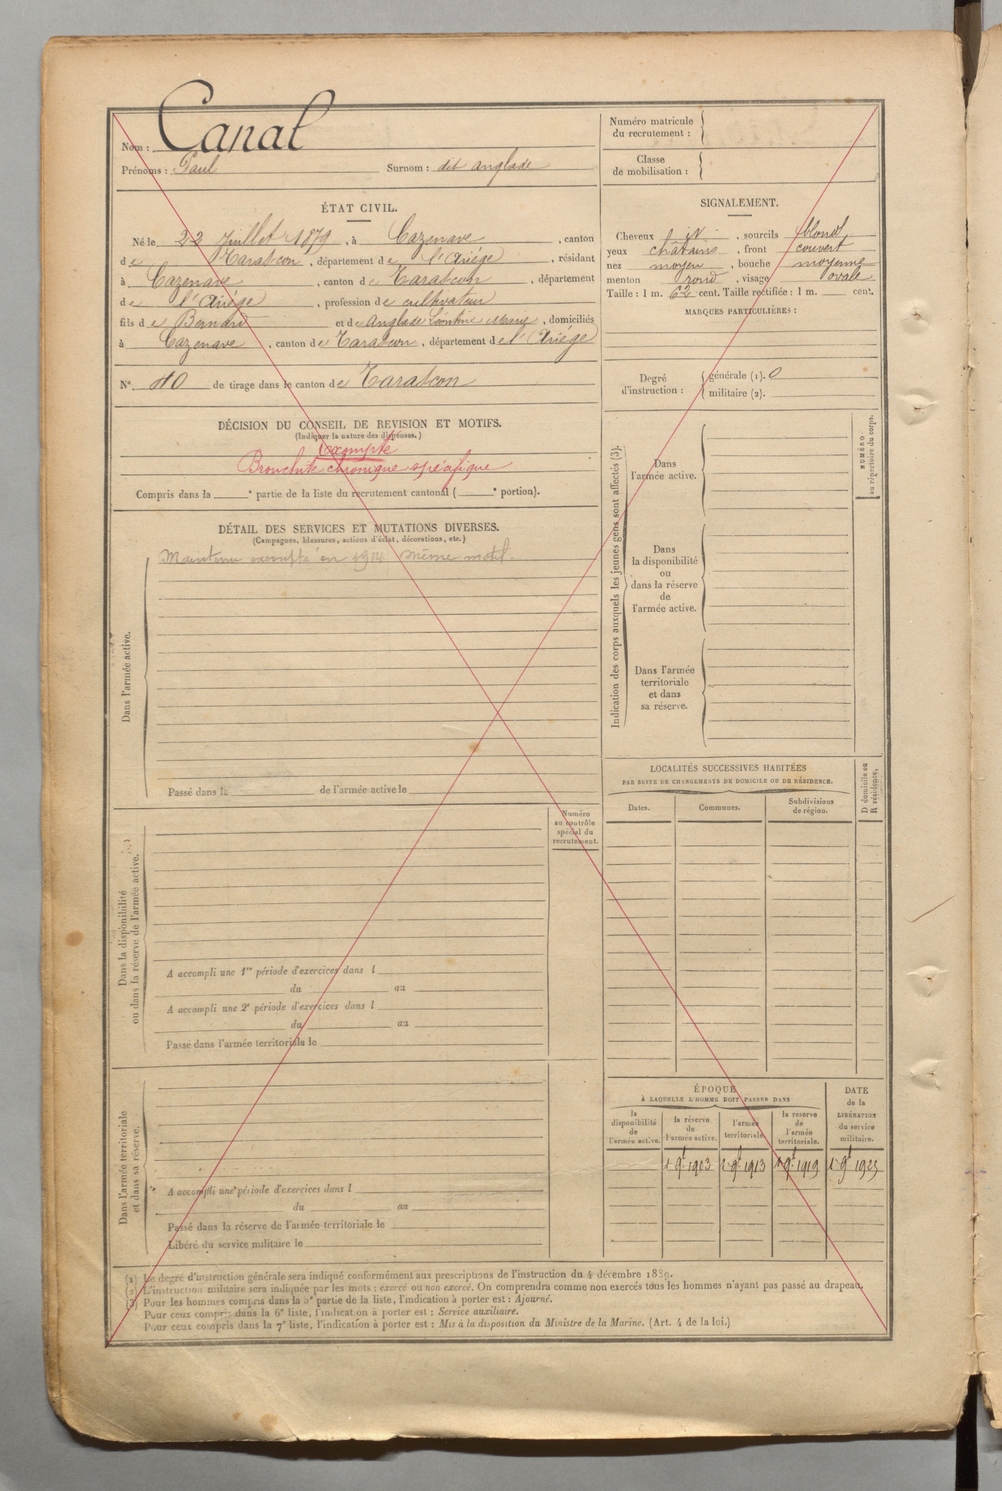 Nom : Canal
Prénoms : Paul Surnom : dit anglade
ÉTAT CIVIL.
Né le 22 Juillet 1879, à Cazenave, canton
de Tarascon, département de l'Ariége, résidant
à Cazenave, canton de Tarascon, département
de l'Ariége, profession de cultivateur
fils de Bernard et de Anglade Léontine Marie, domiciliés
à Cazenave, canton de Tarascon, département de l'Ariége
N°. 40 de tirage dans le canton de Tarascon
DÉCISION DU CONSEIL DE REVISION ET MOTIFS.
(Indiquer la nature des dispenses.)
Exempté
Bronchite chronique spécifique
Compris dans la e partie de la liste du recrutement cantonal ( e portion).
DÉTAIL DES SERVICES ET MUTATIONS DIVERSES.
(Campagnes, blessures, actions d'éclat, décorations, etc.)
Dans l'armée active.
Maintenu exempté en 1914 même motif.
Passé dans la de l'armée active le
Numéro
au contrôle
spécial du
recrutement.
Dans la disponibilité
ou dans la réserve de l'armée active.
A accompli une 1re période d'exercices dans l
du au
A accompli une 2e période d'exercices dans l
du au
Passé dans l'armée territoriale le
Dans l'armée territoriale
et dans sa réserve.
A accompli une période d'exercices dans l
du au
Passé dans la réserve de l'armée territoriale le
Libéré du service militaire le
Numéro matricule
du recrutement :
Classe
de mobilisation :
SIGNALEMENT.
Cheveux id, sourcils blond
yeux châtains, front couvert
nez moyen, bouche moyenne
menton rond, visage ovale
Taille : 1 m. 62 cent. Taille rectifiée : 1 m. cent.
MARQUES PARTICULIÈRES :
Degré
d'instruction :
générale (1). 0
militaire (2).
Indication des corps auxquels les jeunes gens sont affectés (3).
Dans
l'armée active.
Dans
la disponibilité
ou
dans la réserve
de
l'armée active.
Dans l'armée
territoriale
et dans
sa réserve.
NUMÉRO
au répertoire du corps.
LOCALITÉS SUCCESSIVES HABITÉES
PAR SUITE DE CHANGEMENTS DE DOMICILE OU DE RÉSIDENCE.
Dates. Communes. Subdivisions
de région.
D domicile ou
R résidence.
ÉPOQUE
À LAQUELLE L'HOMME DOIT PASSER DANS
la
disponibilité
de
l'armée active.
la réserve
de
l'armée active.
l'armée
territoriale.
la réserve
de
l'armée
territoriale.
DATE
de la
LIBÉRATION
du service
militaire.
1 9bre 1903 1 9bre 1913 1 9bre 1919 1 9bre 1925
(1) Le degré d'instruction générale sera indiqué conformément aux prescriptions de l'instruction du 4 décembre 1889.
(2) L'instruction militaire sera indiquée par les mots : exercé ou non exercé. On comprendra comme non exercés tous les hommes n'ayant pas passé au drapeau.
(3) Pour les hommes compris dans la 5e partie de la liste, l'indication à porter est : Ajourné.
Pour ceux compris dans la 6e liste, l'indication à porter est : Service auxiliaire.
Pour ceux compris dans la 7e liste, l'indication à porter est : Mis à la disposition du Ministre de la Marine. (Art. 4 de la loi.)